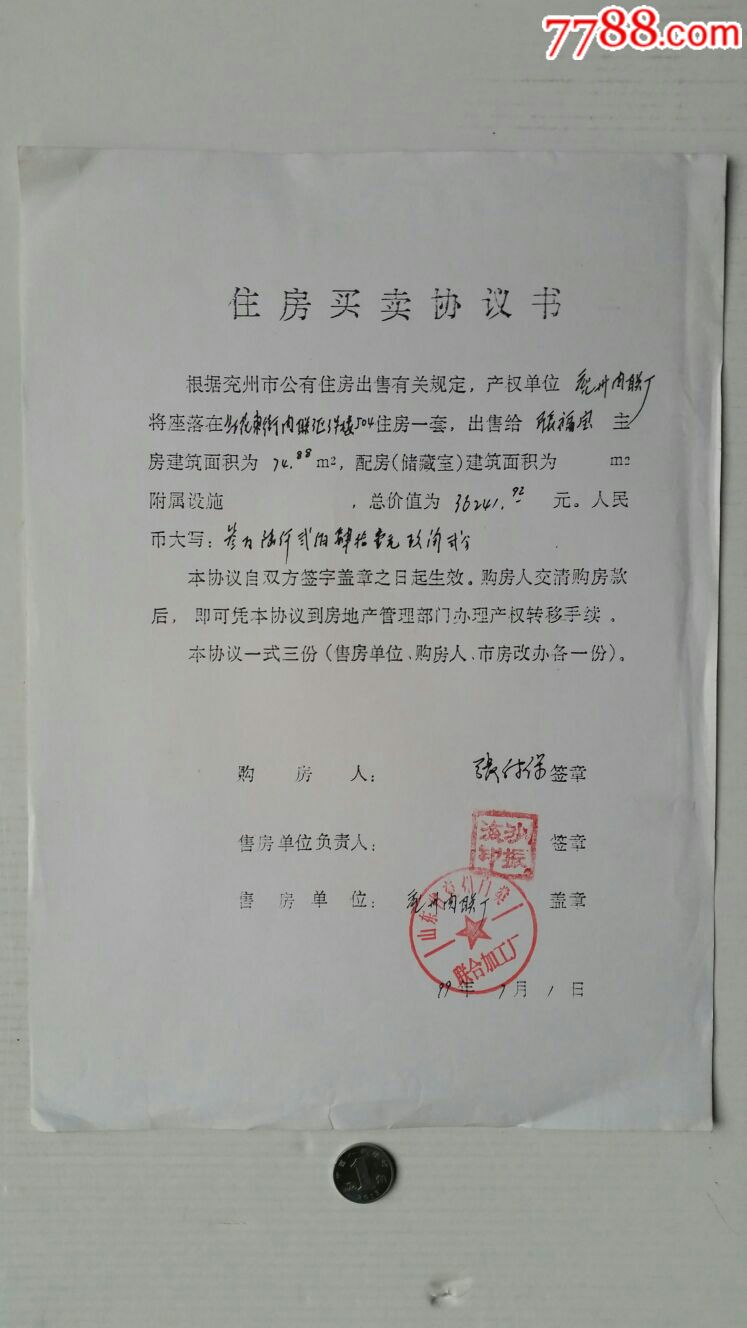 7788.com
住房买卖协议书
根据兖州市公有住房出售有关规定，产权单位 兖州肉联厂
将座落在 东街肉联 504住房一套，出售给 张福宝 主
房建筑面积为 74.88 m²，配房(储藏室)建筑面积为 m²
附属设施 ，总价值为 36241.92 元。人民
币大写：叁万陆仟贰佰肆拾壹元玖角贰分
本协议自双方签字盖章之日起生效。购房人交清购房款
后，即可凭本协议到房地产管理部门办理产权转移手续。
本协议一式三份(售房单位、购房人、市房改办各一份)。
购房人： 張付保 签章
售房单位负责人： 签章
海沙印振
售房单位： 兖州肉联厂 盖章
山东 联合加工厂
99年7月1日
1